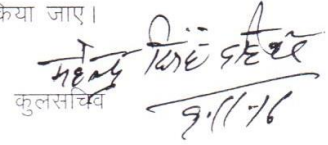 किया जाए।
महेन्द्र सिंह
कुलसचिव
9.11.16